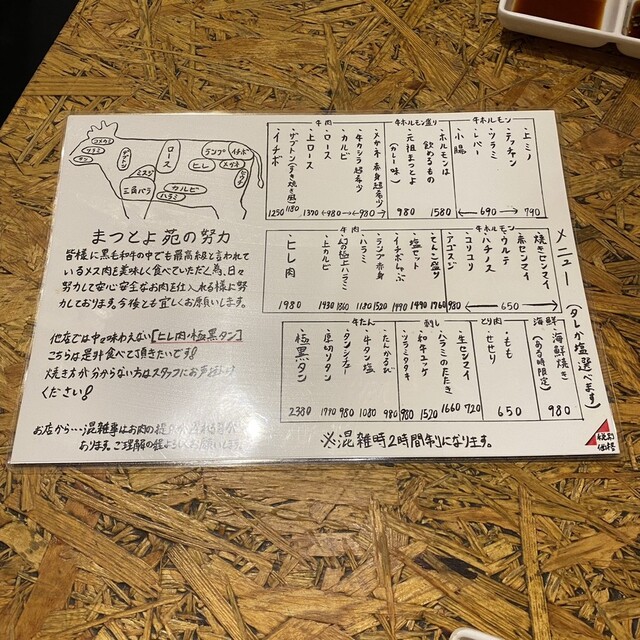 メニュー (タレか塩選べます)
牛ホルモン
・上ミノ 790
・テッチャン
・ツラミ
・レバー
・小腸
690
牛ホルモン盛り
・ホルモンは飲めるもの 1580
・元祖まつとよ(カレー味) 980
牛肉
・メガネ 赤身超希少
・牛カシラ 超希少
980
・カルビ
・ロース
980
・上ロース 1390
・ザブトン(すき焼き風) 1180
・イチボ 1250
牛ホルモン
・焼きセンマイ
・赤センマイ
・ウルテ
・ハチノス
・コリコリ
650
・アゴスジ 980
牛肉
・てんこ盛り 1760
・塩セット 1490
・イチボしゃぶ 1490
・ランプ赤身 1520
・ハラミ 1180
・上ハラミ 1860
・上カルビ 1430
・ヒレ肉 1980
海鮮
・海鮮焼き(ある時限定) 980
とり肉
・もも
・せせり
650
刺し
・生センマイ 720
・ハラミのたたき 1660
・和牛ユッケ 1520
980
牛たん
・たんかるび 980
・牛タン塩 1080
・タンシチュー 980
・厚切りタン 1790
・極黒タン 2380
※混雑時2時間制になります。
税別価格
コメカミ
ツラミ
タン
ロース
ミスジ
三角バラ
カルビ
ハラミ
ヒレ
ランプ
イチボ
メガネ
まつとよ苑の努力
皆様に黒毛和牛の中でも最高峰と言われている
メス肉を美味しく食べていただく為、日々
努力して安心安全なお肉を仕入れる様に努
力しております。今後とも宜しくお願いします。
他店では中々味わえない[ヒレ肉・極黒タン]
こちらは是非食べて頂きたいです!
焼き方が分からない方はスタッフにお声がけ
ください!
お店から…混雑事はお肉の提
おります。ご理解の程よろしくお願いします。